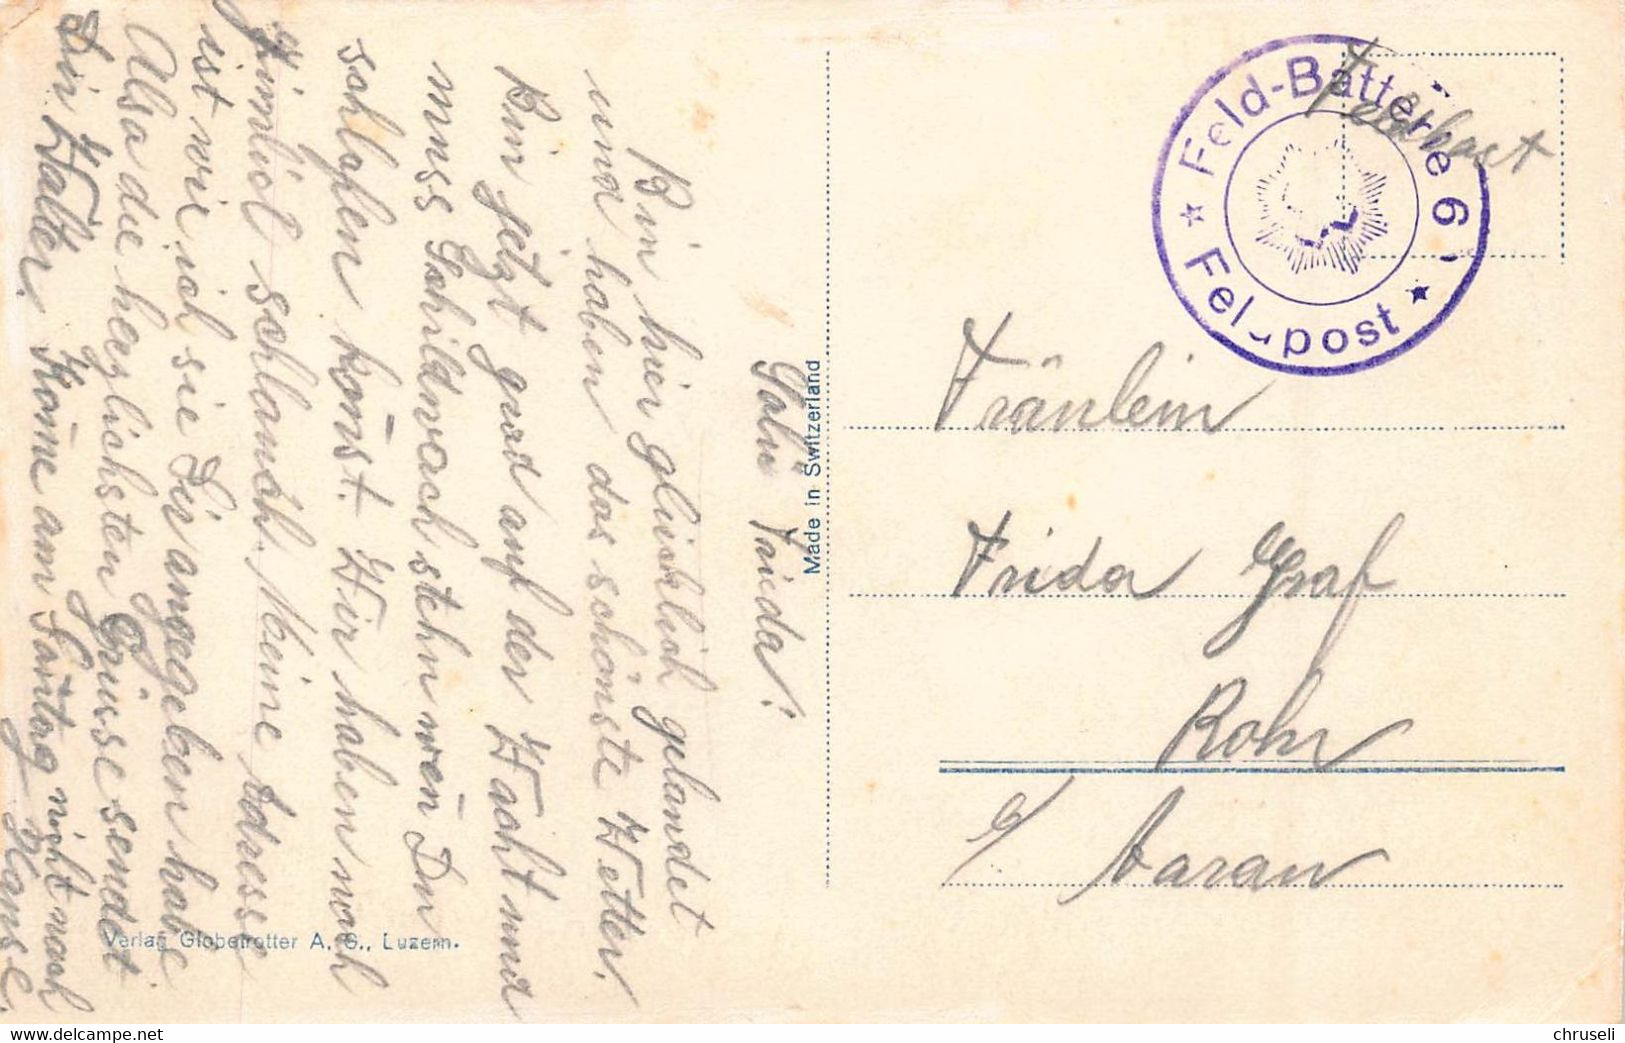 Salü Frieda!
Bin hier glücklich gelandet
und haben das schönste Wetter.
Bin jetzt grad auf der Wacht und
muss Schildwach stehn wen̄ Du
schlafen kan̄st. Wir haben noch
ziemlich schlamäch. Meine Adresse
ist wie ich sie Dir angegeben habe
Also die herzlichsten Grüsse sendet
Dir Walter. Kom̄e am Son̄tag nicht nach
Hause.
Verlag Globetrotter A. G., Luzern.
Made in Switzerland
Feld-Batterie 6
Feldpost
Feldpost
Fräulein
Frida Graf
Rohr
b/ Aarau
chruseli